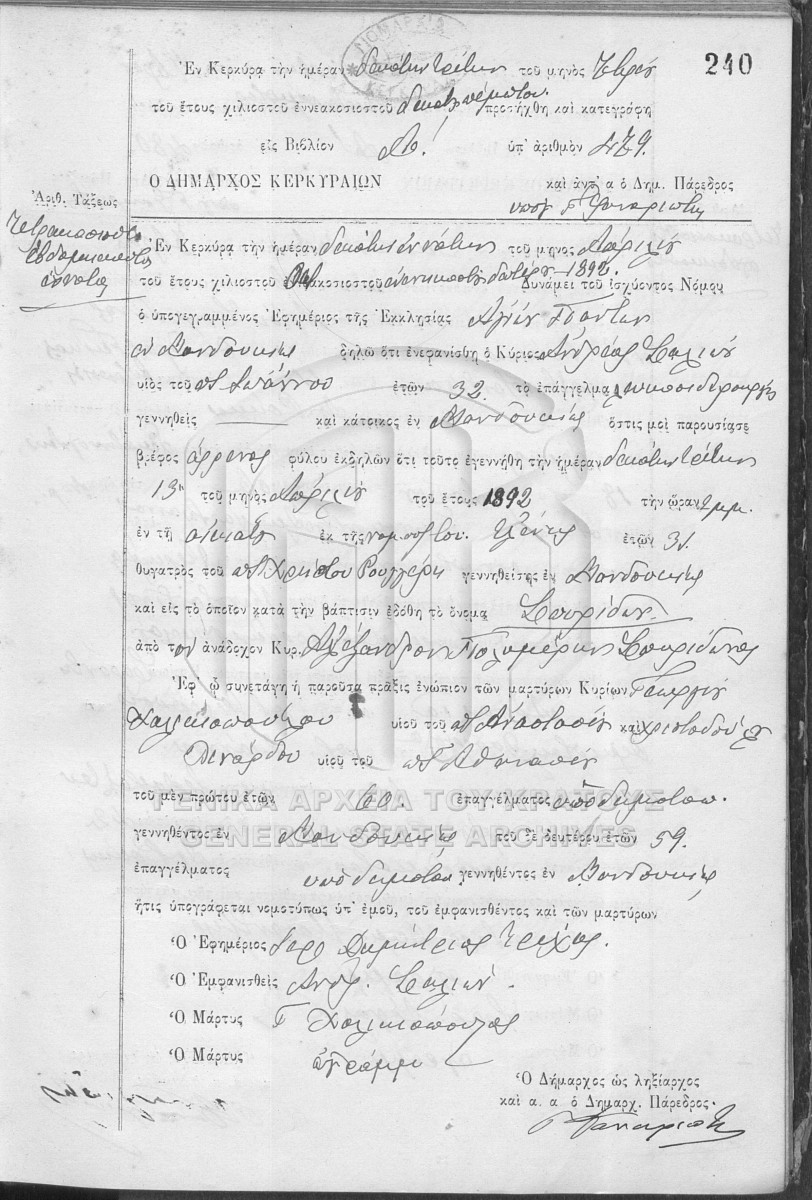 240
Ἐν Κερκύρᾳ τὴν ἡμέραν δεκάτην τρίτην τοῦ μηνὸς
τοῦ ἔτους χιλιοστοῦ ἐννεακοσιοστοῦ δεκάτου πέμπτου προσήχθη καὶ κατεγράφη
εἰς Βιβλίον ὑπ' ἀριθμὸν 479.
Ο ΔΗΜΑΡΧΟΣ ΚΕΡΚΥΡΑΙΩΝ καὶ ἀντ' α ὁ Δημ. Πάρεδρος
Ἀριθ. Τάξεως
Τετρακοσιοστὸς
ἑβδομηκοστὸς
ἔννατος
Ἐν Κερκύρᾳ τὴν ἡμέραν δεκάτην ἐννάτην τοῦ μηνος Ἀπριλίου
τοῦ ἔτους χιλιοστοῦ ὀκτακοσιοστοῦ ἐνενηκοστοῦ δευτέρου 1892. Δυνάμει τοῦ ἰσχύοντος Νόμου
ὁ ὑπογεγραμμένος Ἐφημέριος τῆς Ἐκκλησίας Ἁγίων Πάντων
ἐν Μανδουκίῳ δηλῶ ὅτι ἐνεφανίσθη ὁ Κύριος Ἀνδρέας
υἱὸς τοῦ πτ Ἰωάννου ἐτῶν 32. τὸ ἐπάγγελμα
γεννηθεὶς καὶ κάτοικος ἐν Μανδουκίῳ ὅστις μοὶ παρουσίασε
βρέφος ἄρρενος φύλου ἐκδηλῶν ὅτι τοῦτο ἐγεννήθη τὴν ἡμέραν δεκάτην τρίτην
13η τοῦ μηνὸς Ἀπριλίου τοῦ ἔτους 1892 τὴν ὥραν 2 μμ.
ἐν τῇ οἰκίᾳ του ἐκ τῆς νομ. συζ. του Ἑλένης ἐτῶν 31.
θυγατρὸς τοῦ πτ Χρήστου Ρουγγέρη γεννηθείσης ἐν Μανδουκίῳ
καὶ εἰς τὸ ὁποῖον κατὰ τὴν βάπτισιν ἐδόθη τὸ ὄνομα Σπυρίδων.
ἀπὸ τὸν ἀνάδοχον Κυρ. Ἀλέξανδρον Πολυμέρην Σπυρίδωνος
Ἐφ' ᾧ συνετάγη ἡ παροῦσα πρᾶξις ἐνώπιον τῶν μαρτύρων Κυρίων Γεωργίου
Χαλικιοπούλου υἱοῦ τοῦ πτ Ἀναστασίου καὶ Χριστοδούλου
υἱοῦ τοῦ πτ Ἀθανασίου
τοῦ μὲν πρώτου ἐτῶν 60. ἐπαγγέλματος ὑποδηματοπ.
γεννηθέντος ἐν Μανδουκίῳ τοῦ δὲ δευτέρου ἐτῶν 59.
ἐπαγγέλματος ὑποδηματοπ γεννηθέντος ἐν Μανδουκίῳ
ἥτις ὑπογράφεται νομοτύπως ὑπ' ἐμοῦ, τοῦ ἐμφανισθέντος καὶ τῶν μαρτύρων
Ὁ Ἐφημέριος Ἱερ Δημήτριος
Ὁ Ἐμφανισθεὶς Ἀνδρ.
Ὁ Μάρτυς Γ Χαλικιόπουλος
Ὁ Μάρτυς ἀγράμμ
Ὁ Δήμαρχος ὡς ληξίαρχος
καὶ α. α ὁ Δημαρχ. Πάρεδρος
ΓΕΝΙΚΑ ΑΡΧΕΙΑ ΤΟΥ ΚΡΑΤΟΥΣ
GENERAL STATE ARCHIVES